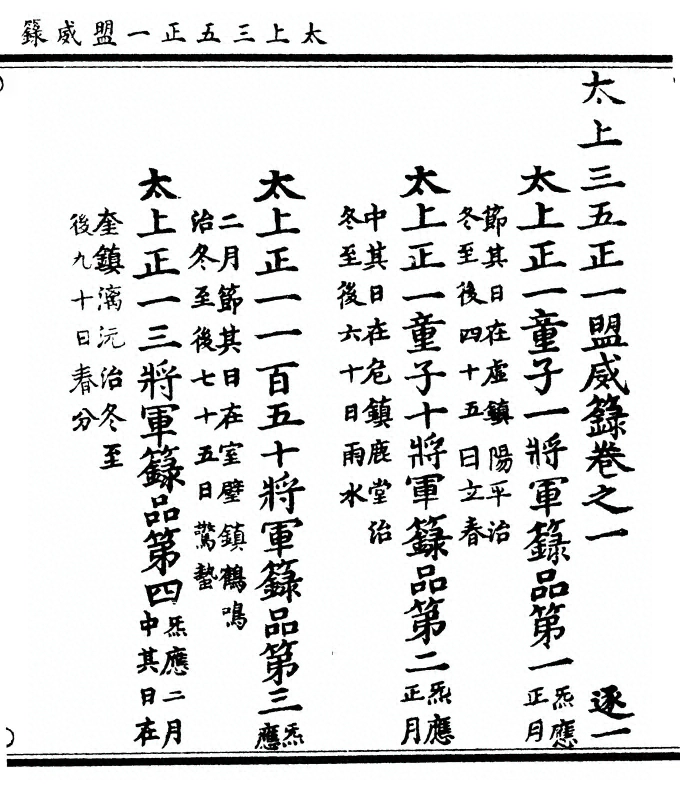 太上三五正一盟威籙
太上三五正一盟威籙卷之一 逐一
太上正一童子一將軍籙品第一 炁應
正月
節其日在虛鎮陽平治
冬至後四十五日立春
太上正一童子十將軍籙品第二 炁應
正月
中其日在危鎮鹿堂治
冬至後六十日雨水
太上正一一百五十將軍籙品第三 炁
應
二月節其日在室壁鎮鶴鳴
治冬至後七十五日驚蟄
太上正一三將軍籙品第四 炁應二月
中其日在
奎鎮漓沅治冬至
後九十日春分